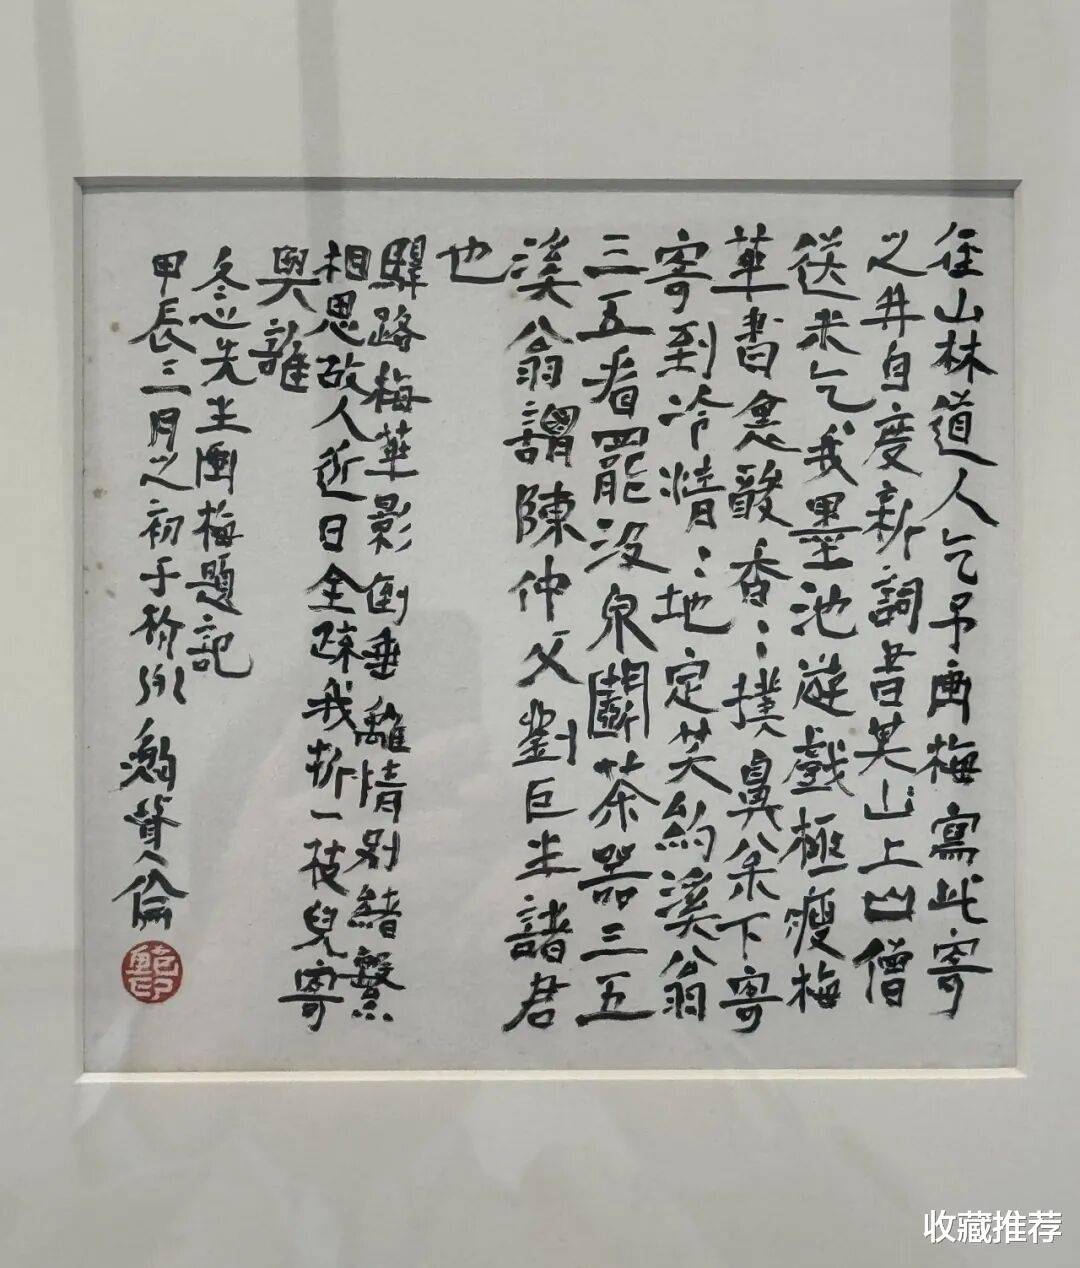 径山林道人乞予画梅寫此寄
之并自度新詞昔某山上山僧
送米乞我墨池遊戲極瘦梅
華書裏酸香：撲鼻松下寄
寄到冷清：地定笑約溪翁
三五看罷汲泉鬭茶器三五
溪翁謂陳仲父劉巨半諸君
也
驛路梅華影倒垂離情別緒繫
相思故人近日全疎我折一枝兒寄
與誰
冬心先生画梅題記
甲辰三月之初于
收藏推荐